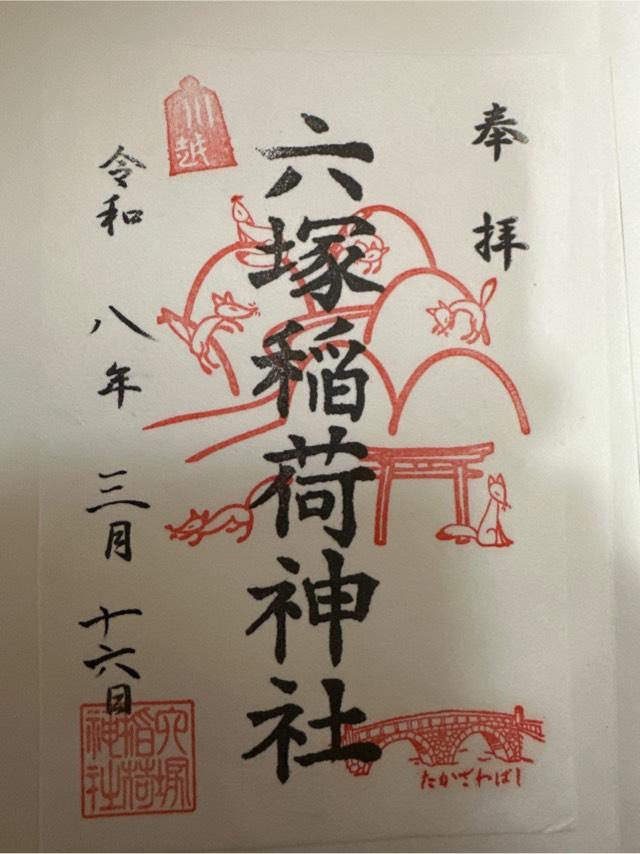 奉拝
川越
六塚稲荷神社
令和八年三月十六日
六塚稲荷神社
たかざわばし